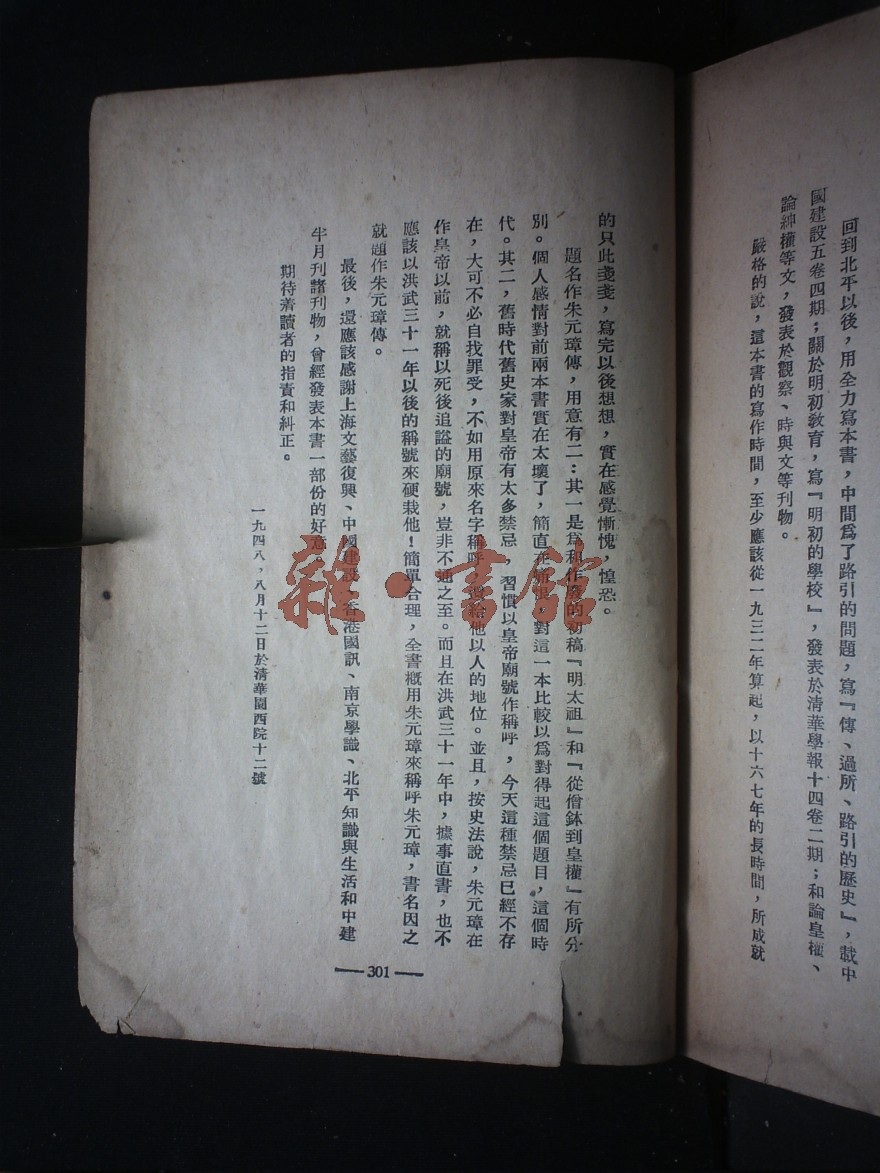 回到北平以後，用全力寫本書，中間爲了路引的問題，寫『傳、過所、路引的歷史』，載中
國建設五卷四期；關於明初敎育，寫『明初的學校』，發表於清華學報十四卷二期；和論皇權、
論紳權等文，發表於觀察、時與文等刊物。
嚴格的說，這本書的寫作時間，至少應該從一九三二年算起，以十六七年的長時間，所成就
的只此戔戔，寫完以後想想，實在感覺慚愧，惶恐。
題名作朱元璋傳，用意有二：其一是爲和作廢的初稿『明太祖』和『從僧鉢到皇權』有所分
別。個人感情對前兩本書實在太壞了，簡直在痛恨，對這一本比較以爲對得起這個題目，這個時
代。其二，舊時代舊史家對皇帝有太多禁忌，習慣以皇帝廟號作稱呼，今天這種禁忌已經不存
在，大可不必自找罪受，不如用原來名字稱呼，還給他以人的地位。並且，按史法說，朱元璋在
作皇帝以前，就稱以死後追謚的廟號，豈非不通之至。而且在洪武三十一年中，據事直書，也不
應該以洪武三十一年以後的稱號來硬栽他！簡單合理，全書槪用朱元璋來稱呼朱元璋，書名因之
就題作朱元璋傳。
最後，還應該感謝上海文藝復興、中國建設、香港國訊、南京學識、北平知識與生活和中建
半月刊諸刊物，曾經發表本書一部份的好意。
期待着讀者的指責和糾正。
一九四八，八月十二日於清華園西院十二號
301
雜·書館